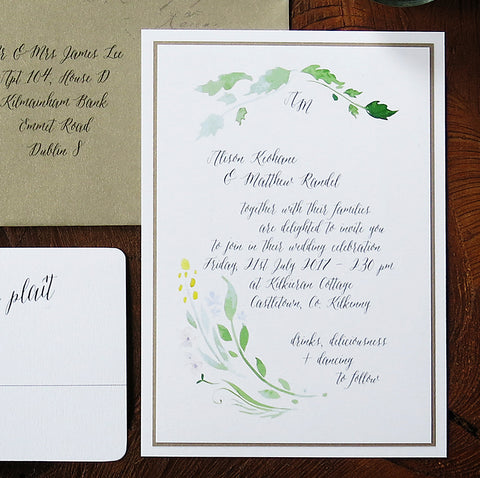 r & Mrs James Lee
Apt 104, House D
Kilmainham Bank
Emmet Road
Dublin 8
plaît
AM
Alison Keohane
& Matthew Randel
together with their families
are delighted to invite you
to join in their wedding celebration
Friday, 21st July 2017 - 2.30 pm
at Kilkieran Cottage
Castletown, Co. Kilkenny
drinks, deliciousness
+ dancing
to follow